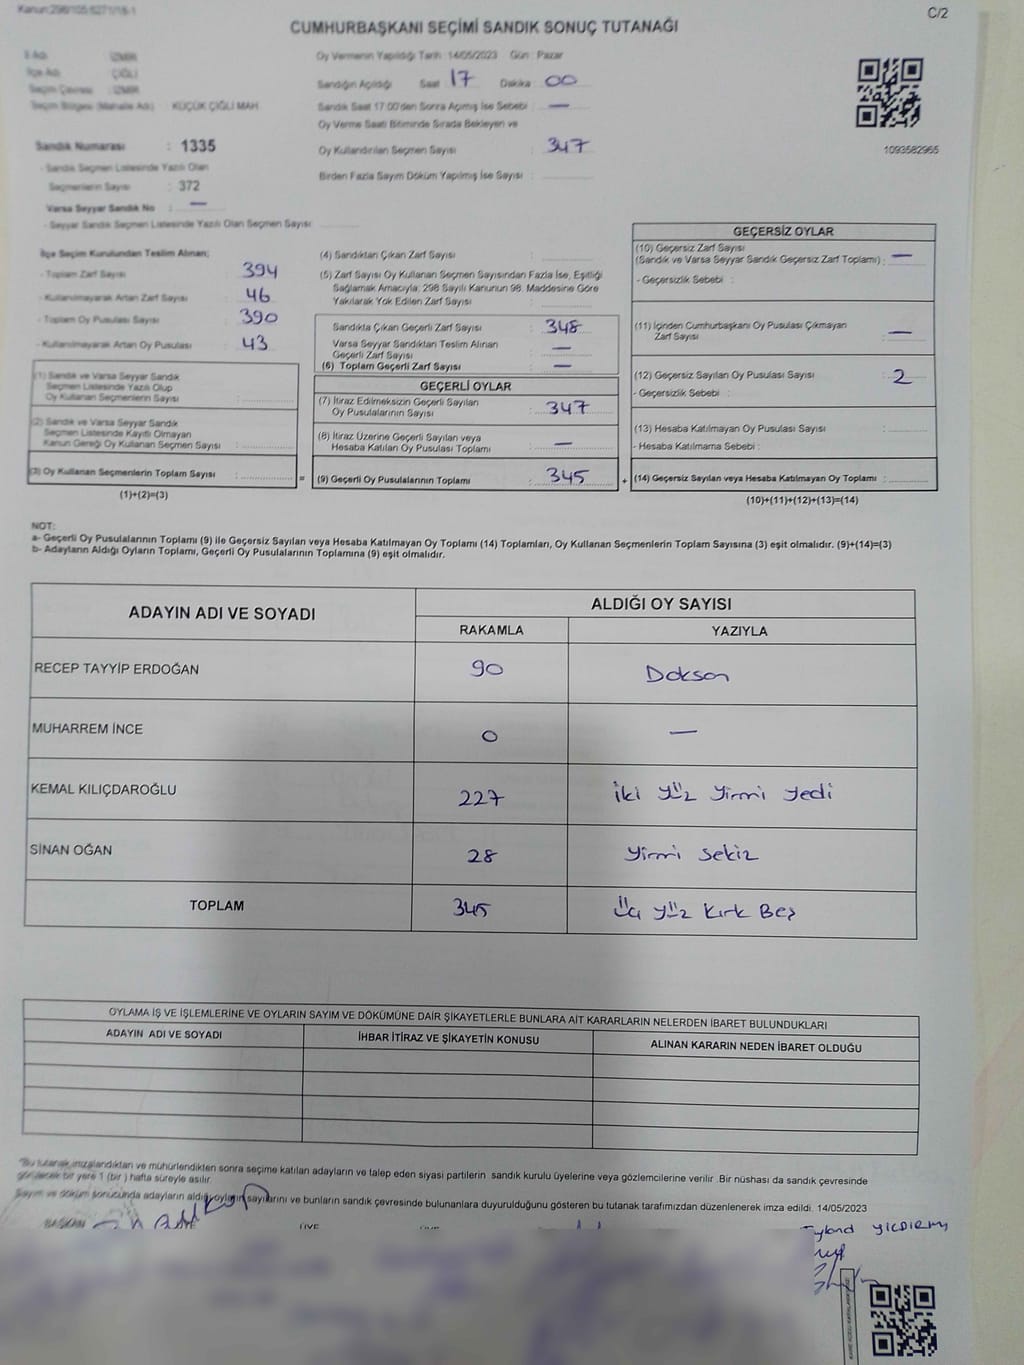 Kanun:298/105:6271/18-1
C/2
CUMHURBAŞKANI SEÇİMİ SANDIK SONUÇ TUTANAĞI
İl Adı : İZMİR
İlçe Adı : ÇİĞLİ
Seçim Çevresi : İZMİR
Seçim Bölgesi (Mahalle Adı) : KÜÇÜK ÇİĞLİ MAH.
Sandık Numarası : 1335
- Sandık Seçmen Listesinde Yazılı Olan
Seçmenlerin Sayısı : 372
Varsa Seyyar Sandık No : —
- Seyyar Sandık Seçmen Listesinde Yazılı Olan Seçmen Sayısı :
Oy Vermenin Yapıldığı Tarih : 14/05/2023 Gün : Pazar
Sandığın Açıldığı Saat : 17 Dakika : 00
Sandık Saat 17:00'den Sonra Açılmış İse Sebebi : —
Oy Verme Saati Bitiminde Sırada Bekleyen ve
Oy Kullandırılan Seçmen Sayısı : 347
Birden Fazla Sayım Döküm Yapılmış İse Sayısı :
1093582965
İlçe Seçim Kurulundan Teslim Alınan;
- Toplam Zarf Sayısı : 394
- Kullanılmayarak Artan Zarf Sayısı : 46
- Toplam Oy Pusulası Sayısı : 390
- Kullanılmayarak Artan Oy Pusulası : 43
(1) Sandık ve Varsa Seyyar Sandık
Seçmen Listesinde Yazılı Olup
Oy Kullanan Seçmenlerin Sayısı :
(2) Sandık ve Varsa Seyyar Sandık
Seçmen Listesinde Kayıtlı Olmayan
Kanun Gereği Oy Kullanan Seçmen Sayısı :
(3) Oy Kullanan Seçmenlerin Toplam Sayısı : =
(1)+(2)=(3)
(4) Sandıktan Çıkan Zarf Sayısı :
(5) Zarf Sayısı Oy Kullanan Seçmen Sayısından Fazla İse, Eşitliği
Sağlamak Amacıyla; 298 Sayılı Kanunun 98. Maddesine Göre
Yakılarak Yok Edilen Zarf Sayısı :
Sandıkta Çıkan Geçerli Zarf Sayısı : 348
Varsa Seyyar Sandıktan Teslim Alınan
Geçerli Zarf Sayısı : —
(6) Toplam Geçerli Zarf Sayısı : —
GEÇERLİ OYLAR
(7) İtiraz Edilmeksizin Geçerli Sayılan
Oy Pusulalarının Sayısı : 347
(8) İtiraz Üzerine Geçerli Sayılan veya
Hesaba Katılan Oy Pusulası Toplamı : —
(9) Geçerli Oy Pusulalarının Toplamı : 345 +
GEÇERSİZ OYLAR
(10) Geçersiz Zarf Sayısı
(Sandık ve Varsa Seyyar Sandık Geçersiz Zarf Toplamı) : —
- Geçersizlik Sebebi :
(11) İçinden Cumhurbaşkanı Oy Pusulası Çıkmayan
Zarf Sayısı : —
(12) Geçersiz Sayılan Oy Pusulası Sayısı : 2
- Geçersizlik Sebebi :
(13) Hesaba Katılmayan Oy Pusulası Sayısı :
- Hesaba Katılmama Sebebi :
(14) Geçersiz Sayılan veya Hesaba Katılmayan Oy Toplamı :
(10)+(11)+(12)+(13)=(14)
NOT:
a- Geçerli Oy Pusulalarının Toplamı (9) ile Geçersiz Sayılan veya Hesaba Katılmayan Oy Toplamı (14) Toplamları, Oy Kullanan Seçmenlerin Toplam Sayısına (3) eşit olmalıdır. (9)+(14)=(3)
b- Adayların Aldığı Oyların Toplamı, Geçerli Oy Pusulalarının Toplamına (9) eşit olmalıdır.
ADAYIN ADI VE SOYADI ALDIĞI OY SAYISI
RAKAMLA YAZIYLA
RECEP TAYYİP ERDOĞAN 90 Doksan
MUHARREM İNCE 0 —
KEMAL KILIÇDAROĞLU 227 iki yüz yirmi yedi
SİNAN OĞAN 28 yirmi sekiz
TOPLAM 345 üç yüz kırk Beş
OYLAMA İŞ VE İŞLEMLERİNE VE OYLARIN SAYIM VE DÖKÜMÜNE DAİR ŞİKAYETLERLE BUNLARA AİT KARARLARIN NELERDEN İBARET BULUNDUKLARI
ADAYIN ADI VE SOYADI İHBAR İTİRAZ VE ŞİKAYETİN KONUSU ALINAN KARARIN NEDEN İBARET OLDUĞU
*Bu tutanak imzalandıktan ve mühürlendikten sonra seçime katılan adayların ve talep eden siyasi partilerin sandık kurulu üyelerine veya gözlemcilerine verilir .Bir nüshası da sandık çevresinde
görülecek bir yere 1 (bir ) hafta süreyle asılır.
Sayım ve döküm sonucunda adayların aldığı oyların sayılarını ve bunların sandık çevresinde bulunanlara duyurulduğunu gösteren bu tutanak tarafımızdan düzenlenerek imza edildi. 14/05/2023
BAŞKAN ÜYE ÜYE
YILDIRIM